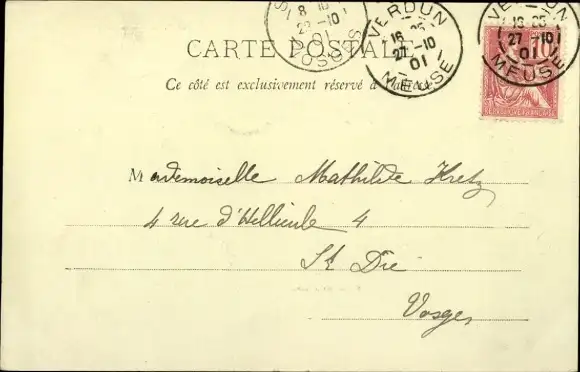 VERDUN
16 25
27 -10
01
MEUSE
VERDUN
16 25
27 -10
01
MEUSE
8 10
01
VOSGES
10
CARTE POSTALE
Ce côté est exclusivement réservé à l'adresse
Mademoiselle Mathilde Kretz
4 rue d'Hellieule 4
St Dié
Vosges